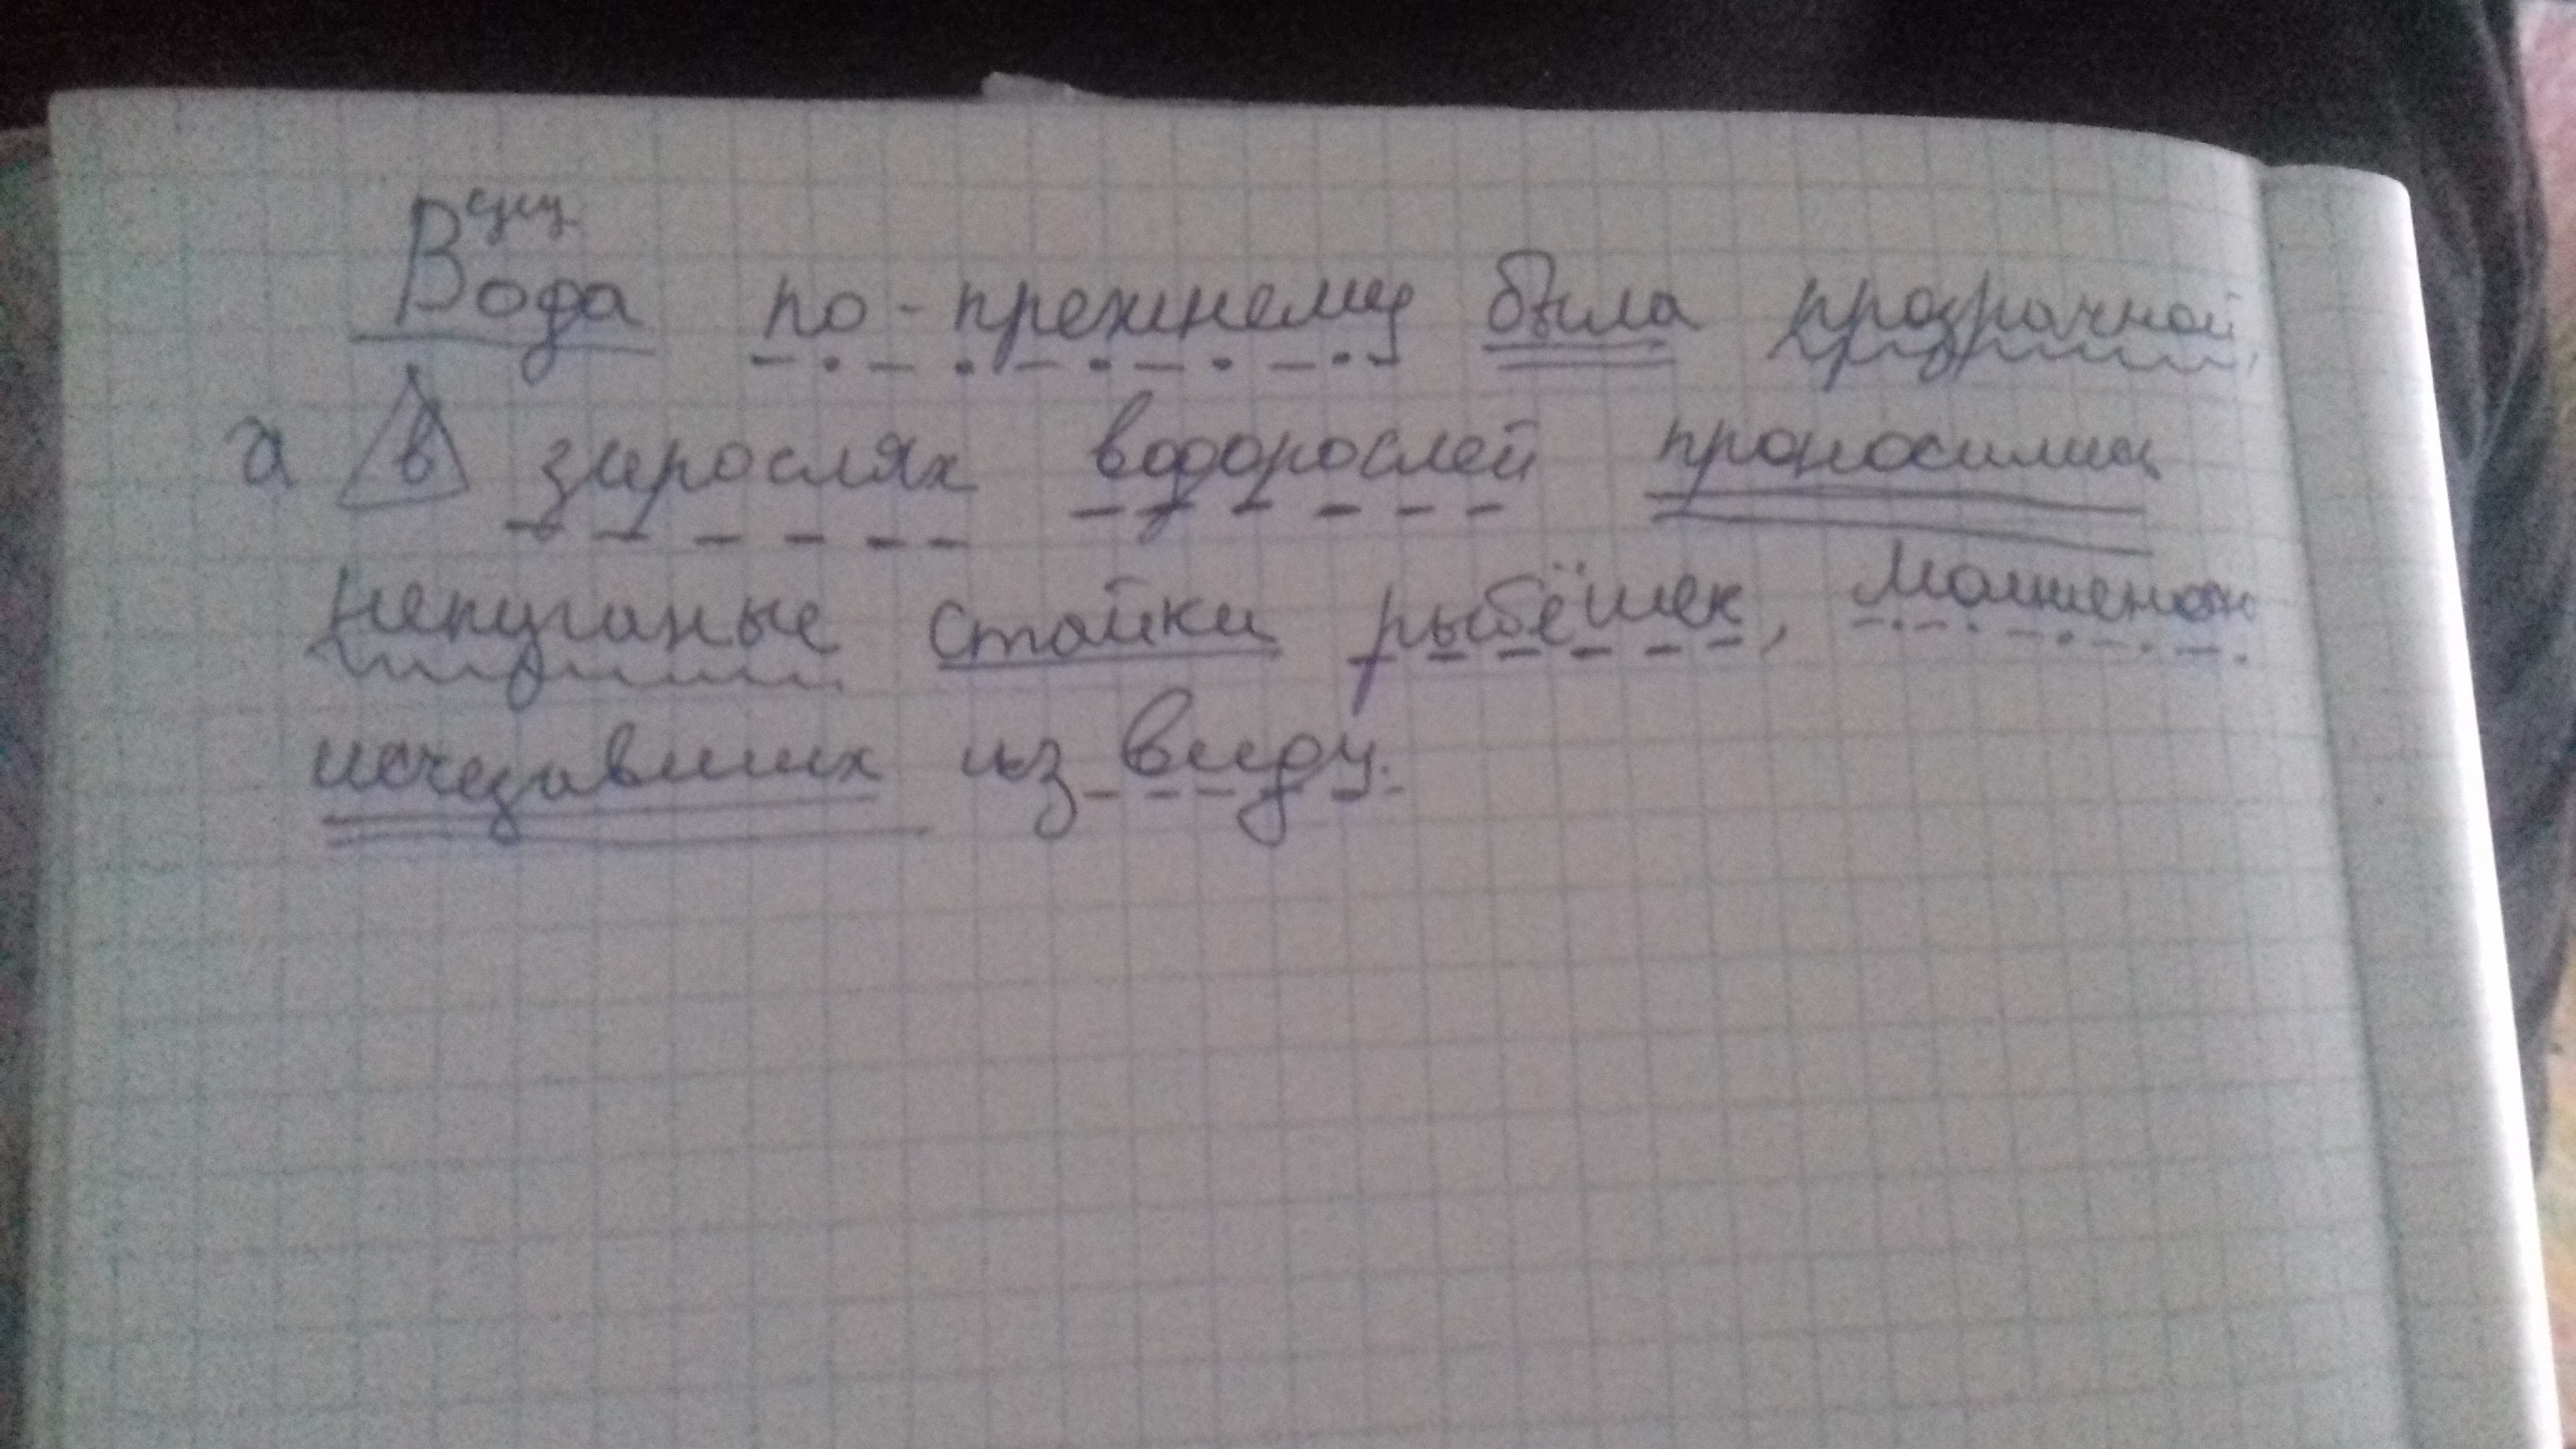 сущ
Вода по-прежнему была прозрачной,
а в зарослях водорослей проносились
непуганые стайки рыбёшек, мгновенно
исчезавших из виду.